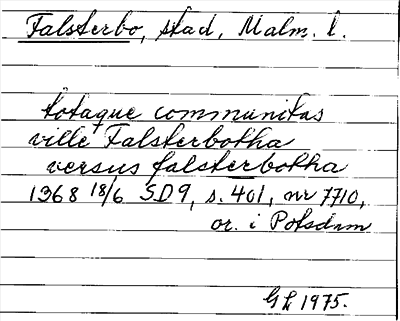 Falsterbo, stad, Malm. l.
totaque communitas
ville Falsterbotha
versus falsterbotha
1368 18/6 SD9, s. 401, nr 7710,
or. i Potsdam
GL 1975.